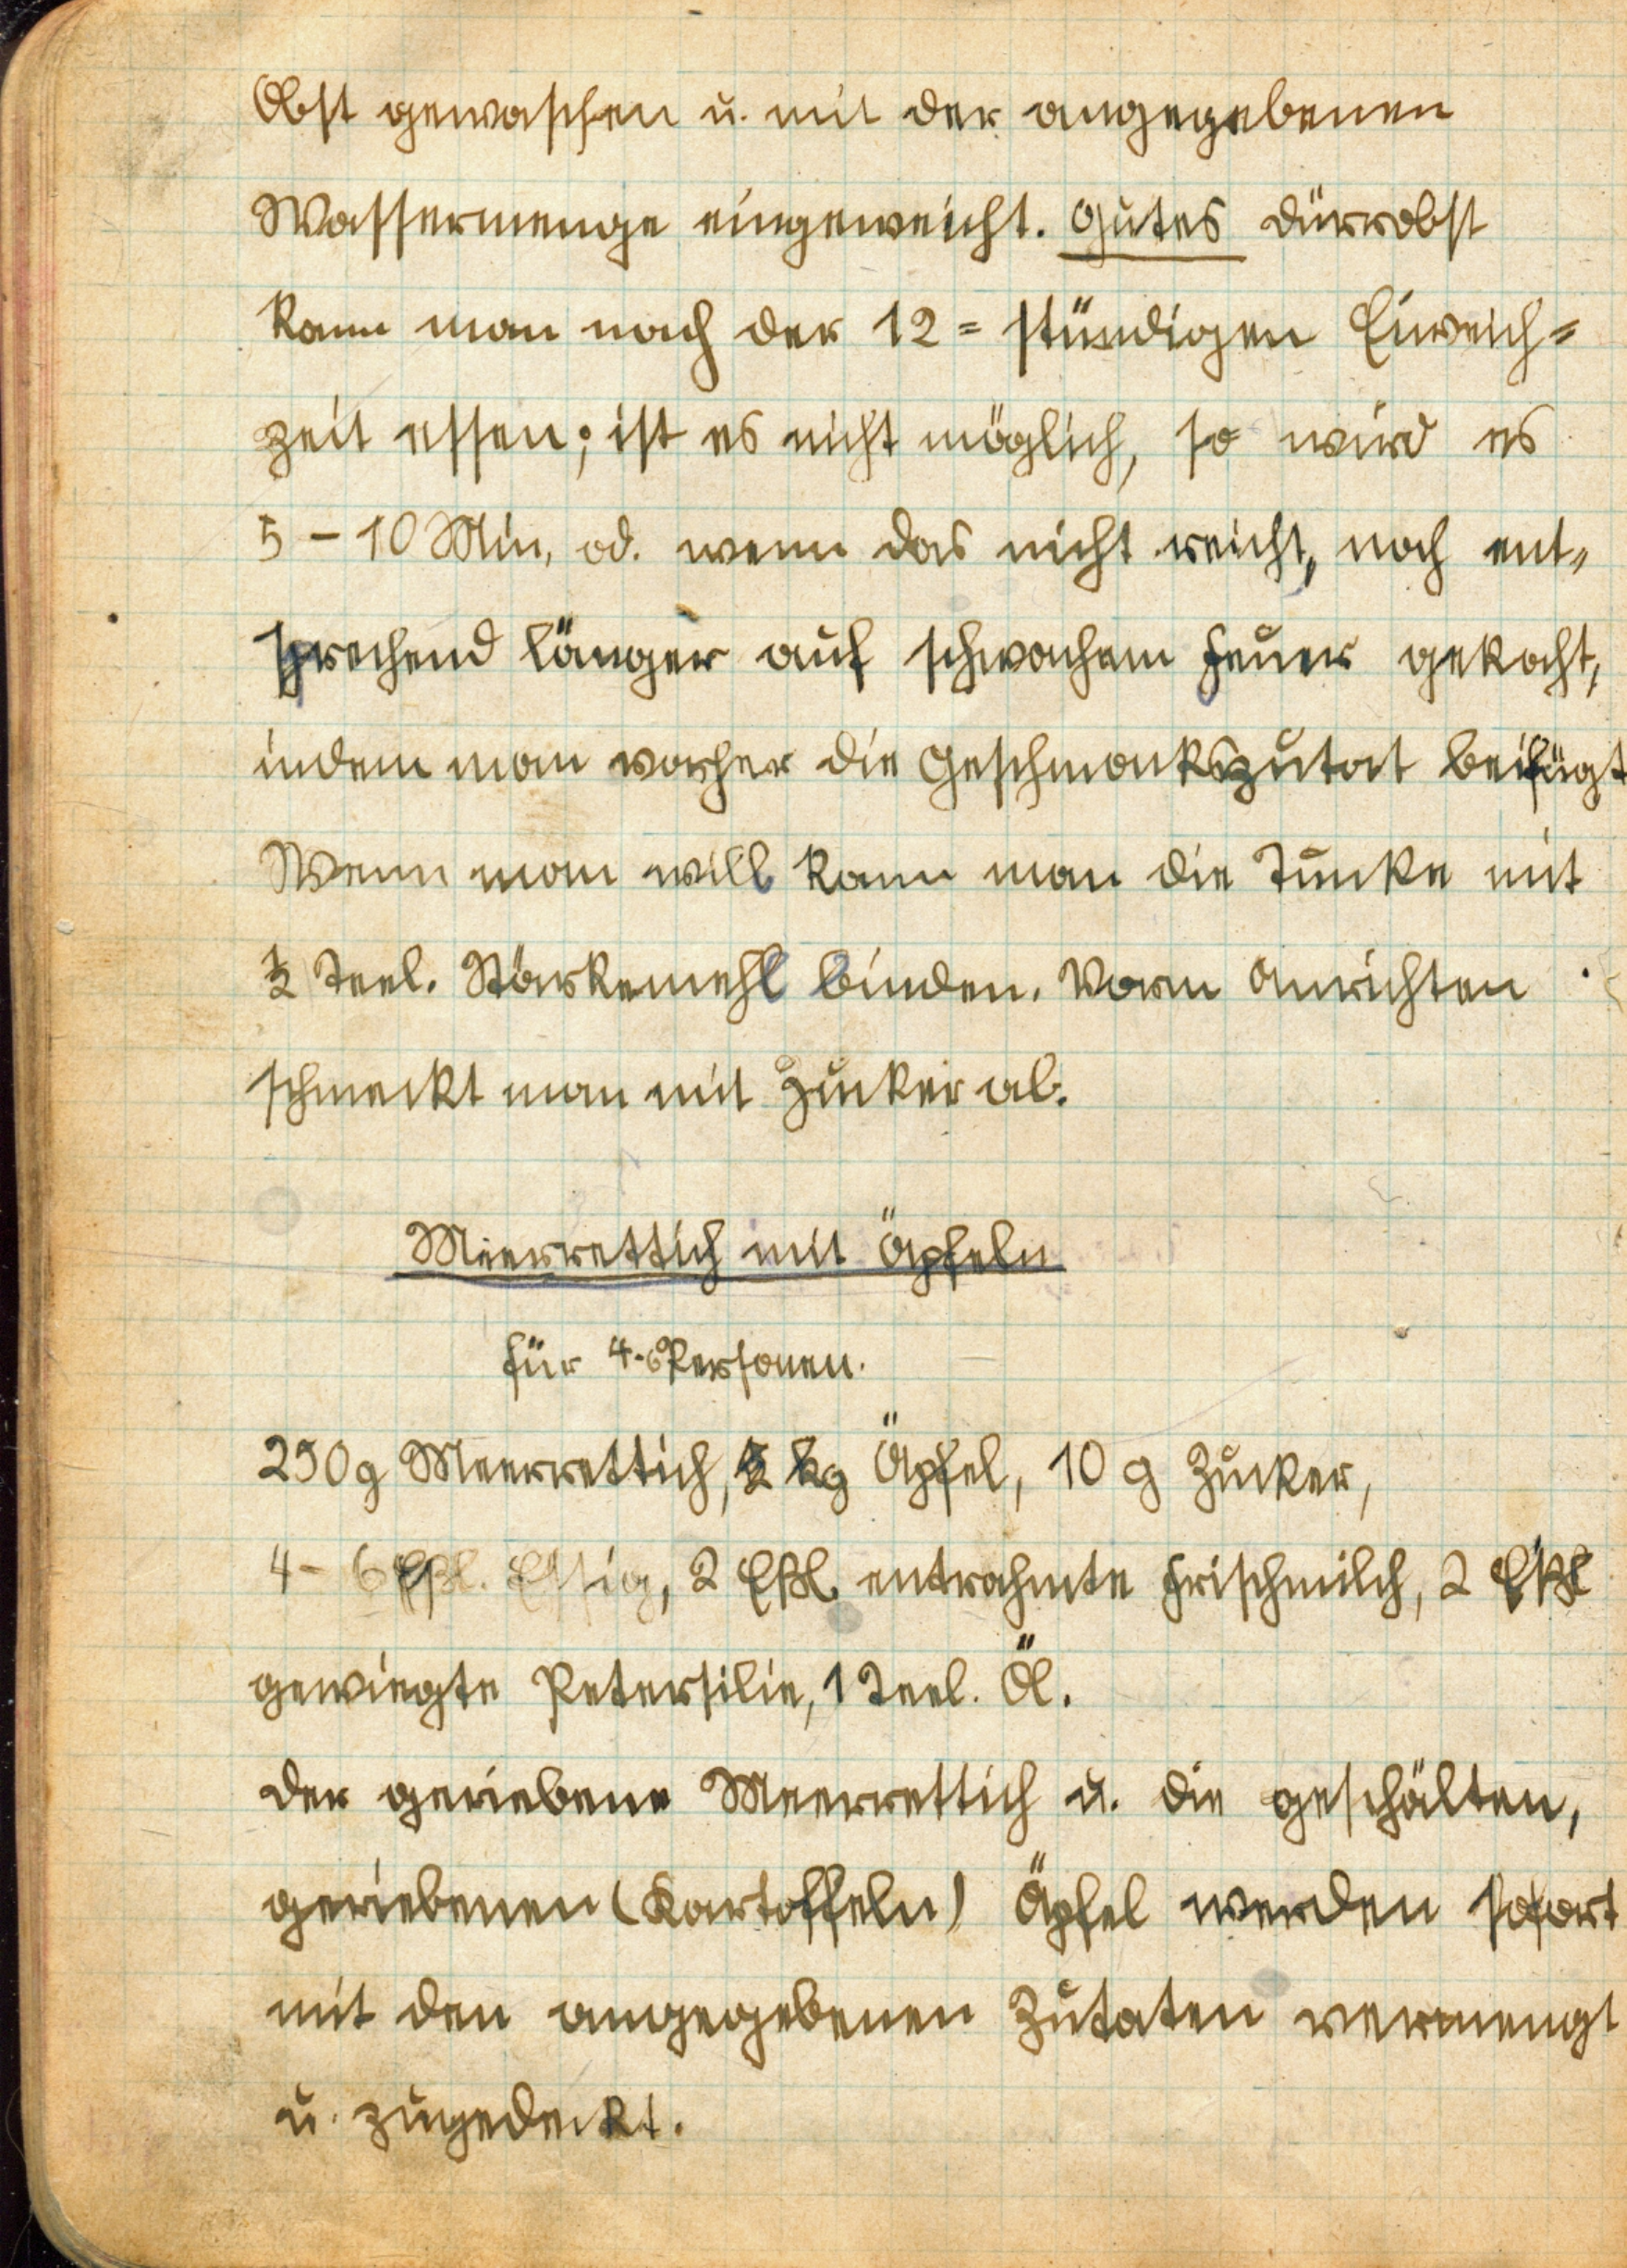 Obst gewaschen u. mit der angegebenen
Wassermenge eingeweicht. Gutes Dürrobst
kann man nach der 12 = stündigen Einweich=
zeit essen; ist es nicht möglich, so wird es
5 – 10 Min, od. wenn das nicht reicht, noch ent„
sprechend länger auf schwachem Feuer gekocht,
indem man vorher die Geschmackszutat beifügt
Wenn man will kann man die Tunke mit
½ Teel. Stärkemehl binden. Vorm Anrichten
schmeckt man mit Zucker ab.
Meerrettich mit Äpfeln
für 4-6 Personen.
250g Meerrettich, ½ kg Äpfel, 10 g Zucker,
4 – 6 Eßl. Essig, 2 Eßl. entrahmte Frischmilch, 2 Eßl
gewiegte Petersilie, 1 Teel. Öl.
Der geriebene Meerrettich u. die geschälten,
geriebenen (Kartoffeln) Äpfel werden sofort
mit den angegebenen Zutaten vermengt
u. zugedeckt.